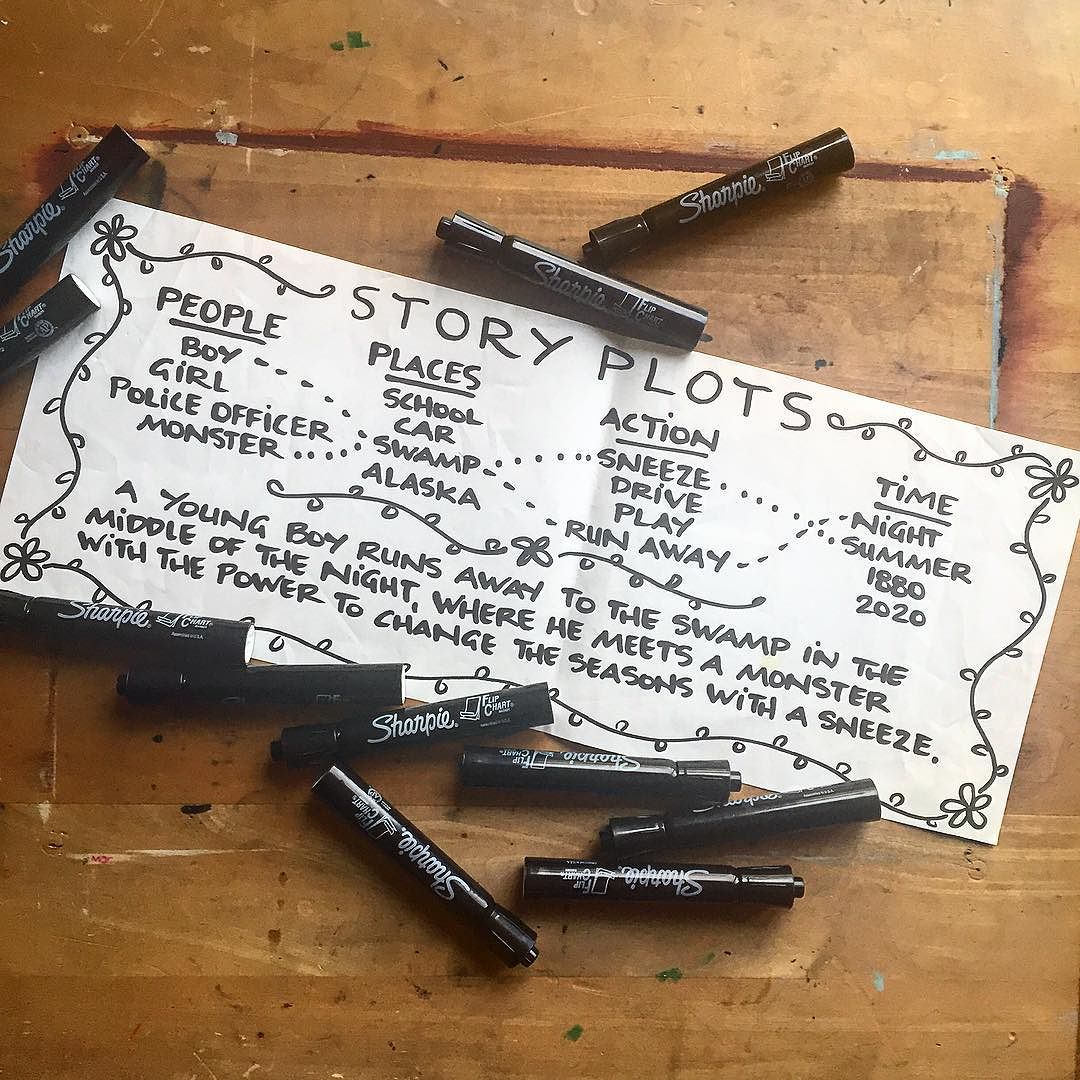 STORY PLOTS
PEOPLE
BOY
GIRL
POLICE OFFICER
MONSTER
PLACES
SCHOOL
CAR
SWAMP
ALASKA
ACTION
SNEEZE
DRIVE
PLAY
RUN AWAY
TIME
NIGHT
SUMMER
1880
2020
A YOUNG BOY RUNS AWAY TO THE SWAMP IN THE
MIDDLE OF THE NIGHT, WHERE HE MEETS A MONSTER
WITH THE POWER TO CHANGE THE SEASONS WITH A SNEEZE.
Sharpie. FLIP CHART
Sharpie. FLIP CHART
Sharpie. FLIP CHART
FLIP CHART
Sharpie. FLIP CHART
Sharpie. FLIP CHART
Sharpie. FLIP CHART
Sharpie. FLIP CHART
Sharpie. FLIP CHART
Sharpie